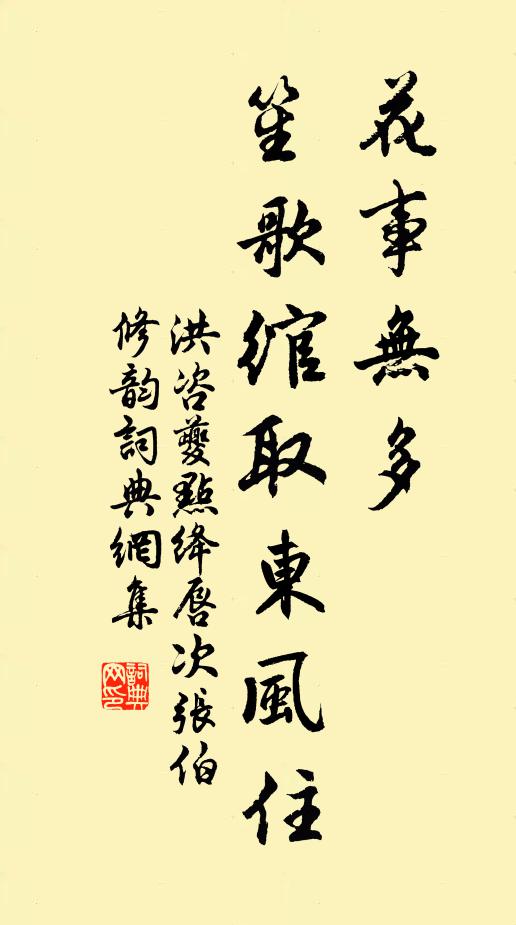 花事無多
笙歌綰取東風住
洪咨夔點絳唇次張伯
修韵詞典網集
詞典
网印